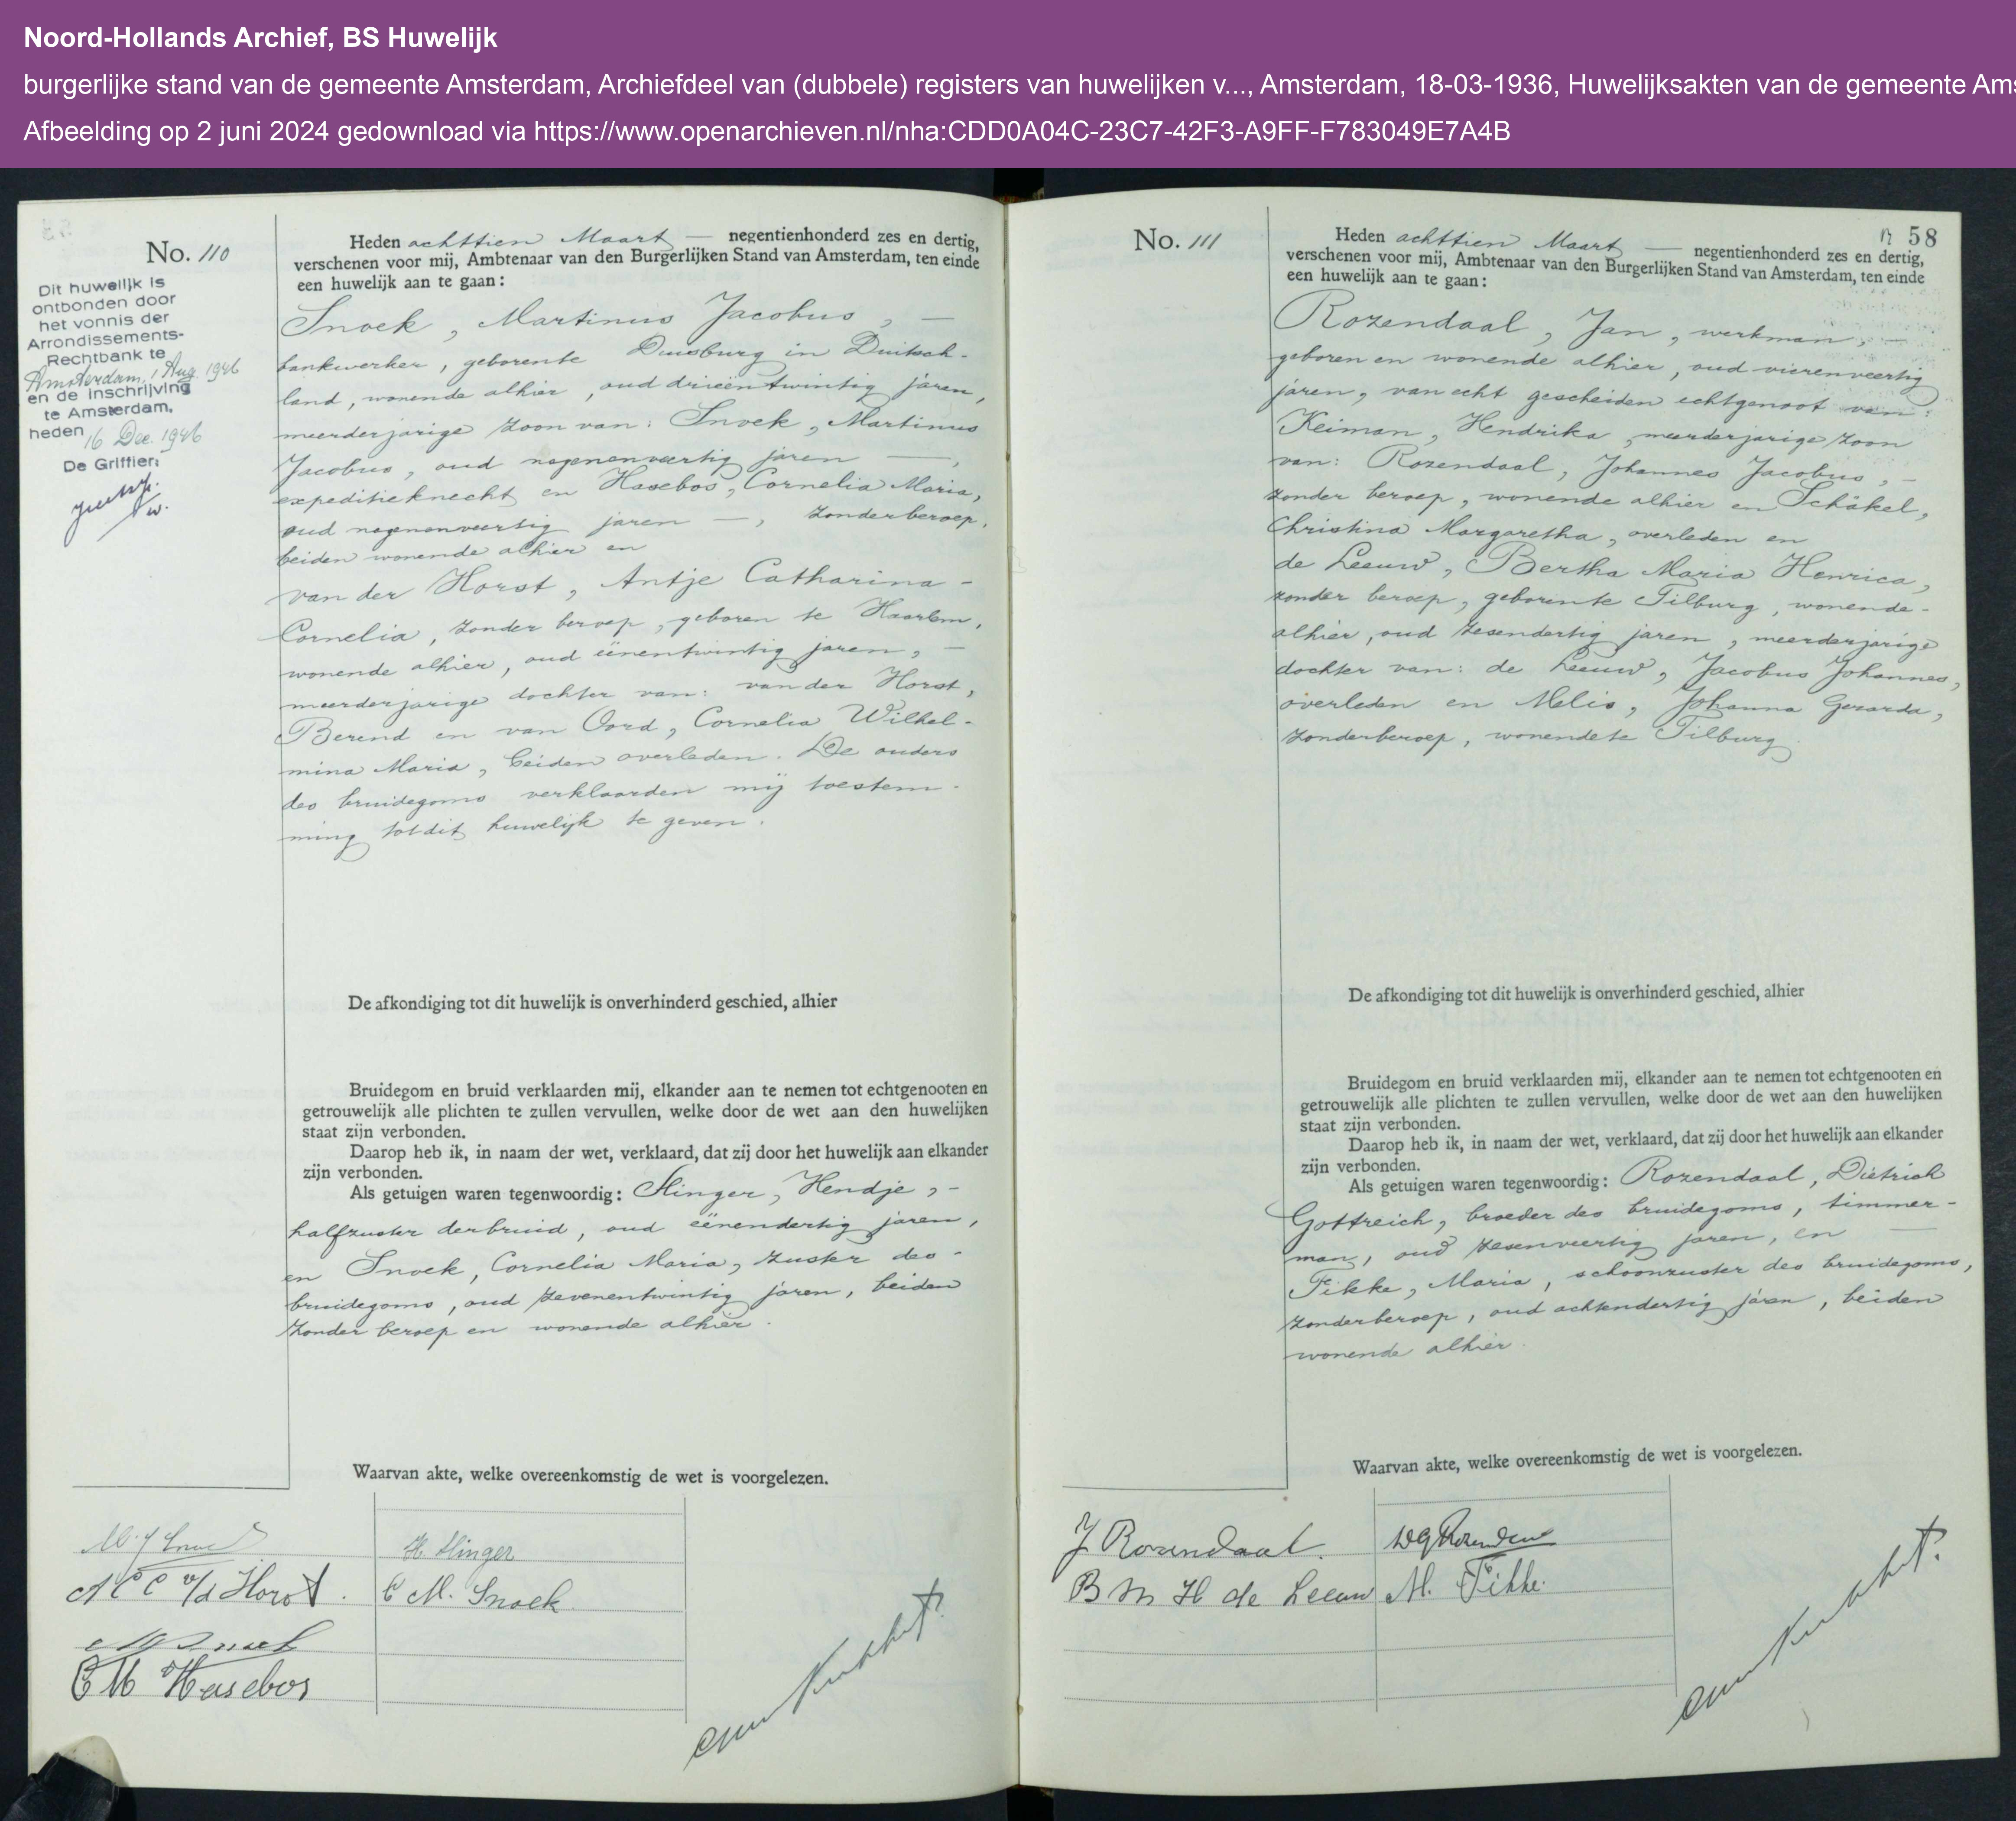 Noord-Hollands Archief, BS Huwelijk
burgerlijke stand van de gemeente Amsterdam, Archiefdeel van (dubbele) registers van huwelijken v..., Amsterdam, 18-03-1936, Huwelijksakten van de gemeente Ams
Afbeelding op 2 juni 2024 gedownload via https://www.openarchieven.nl/nha:CDD0A04C-23C7-42F3-A9FF-F783049E7A4B
No. 110
Dit huwelijk is
ontbonden door
het vonnis der
Arrondissements-
Rechtbank te
Amsterdam, 1 Aug. 1946
en de inschrijving
te Amsterdam,
heden 16 Dec. 1946
De Griffier:
Heden achttien Maart — negentienhonderd zes en dertig,
verschenen voor mij, Ambtenaar van den Burgerlijken Stand van Amsterdam, ten einde
een huwelijk aan te gaan:
Snoek, Martinus Jacobus, —
bankwerker, geboren te Duisburg in Duitsch-
land, wonende alhier, oud drieëntwintig jaren,
meerderjarige zoon van: Snoek, Martinus
Jacobus, oud negenenveertig jaren —,
expeditieknecht en Hasebos, Cornelia Maria,
oud negenenveertig jaren —, zonder beroep,
beiden wonende alhier en
van der Horst, Antje Catharina -
Cornelia, zonder beroep, geboren te Haarlem,
wonende alhier, oud eenentwintig jaren, —
meerderjarige dochter van: van der Horst,
Berend en van Oord, Cornelia Wilhel-
mina Maria, beiden overleden. De ouders
des bruidegoms verklaarden mij toestem-
ming tot dit huwelijk te geven.
De afkondiging tot dit huwelijk is onverhinderd geschied, alhier
Bruidegom en bruid verklaarden mij, elkander aan te nemen tot echtgenooten en
getrouwelijk alle plichten te zullen vervullen, welke door de wet aan den huwelijken
staat zijn verbonden.
Daarop heb ik, in naam der wet, verklaard, dat zij door het huwelijk aan elkander
zijn verbonden.
Als getuigen waren tegenwoordig: Slinger, Hendje, -
halfzuster der bruid, oud eenendertig jaren,
en Snoek, Cornelia Maria, zuster des -
bruidegoms, oud zevenentwintig jaren, beiden
zonder beroep en wonende alhier.
Waarvan akte, welke overeenkomstig de wet is voorgelezen.
M. J. Snoek
H. Slinger
A C C v/d Horst.
C M. Snoek
M J Snoek
C M Hasebos
No. 111
58
Heden achttien Maart — negentienhonderd zes en dertig,
verschenen voor mij, Ambtenaar van den Burgerlijken Stand van Amsterdam, ten einde
een huwelijk aan te gaan:
Rozendaal, Jan, werkman, —
geboren en wonende alhier, oud vierenveertig
jaren, van echt gescheiden echtgenoot van:
Keiman, Hendrika, meerderjarige zoon
van: Rozendaal, Johannes Jacobus, -
zonder beroep, wonende alhier en Schäkel,
Christina Margaretha, overleden en
de Leeuw, Bertha Maria Henrica,
zonder beroep, geboren te Tilburg, wonende -
alhier, oud zesendertig jaren, meerderjarige
dochter van: de Leeuw, Jacobus Johannes,
overleden en Melis, Johanna Gerarda,
zonder beroep, wonende te Tilburg.
De afkondiging tot dit huwelijk is onverhinderd geschied, alhier
Bruidegom en bruid verklaarden mij, elkander aan te nemen tot echtgenooten en
getrouwelijk alle plichten te zullen vervullen, welke door de wet aan den huwelijken
staat zijn verbonden.
Daarop heb ik, in naam der wet, verklaard, dat zij door het huwelijk aan elkander
zijn verbonden.
Als getuigen waren tegenwoordig: Rozendaal, Dietrich
Gottreich, broeder des bruidegoms, timmer-
man, oud zesenveertig jaren, en —
Fikke, Maria, schoonzuster des bruidegoms,
zonder beroep, oud achtendertig jaren, beiden
wonende alhier.
Waarvan akte, welke overeenkomstig de wet is voorgelezen.
J Rozendaal.
B M H de Leeuw
M. Fikke.